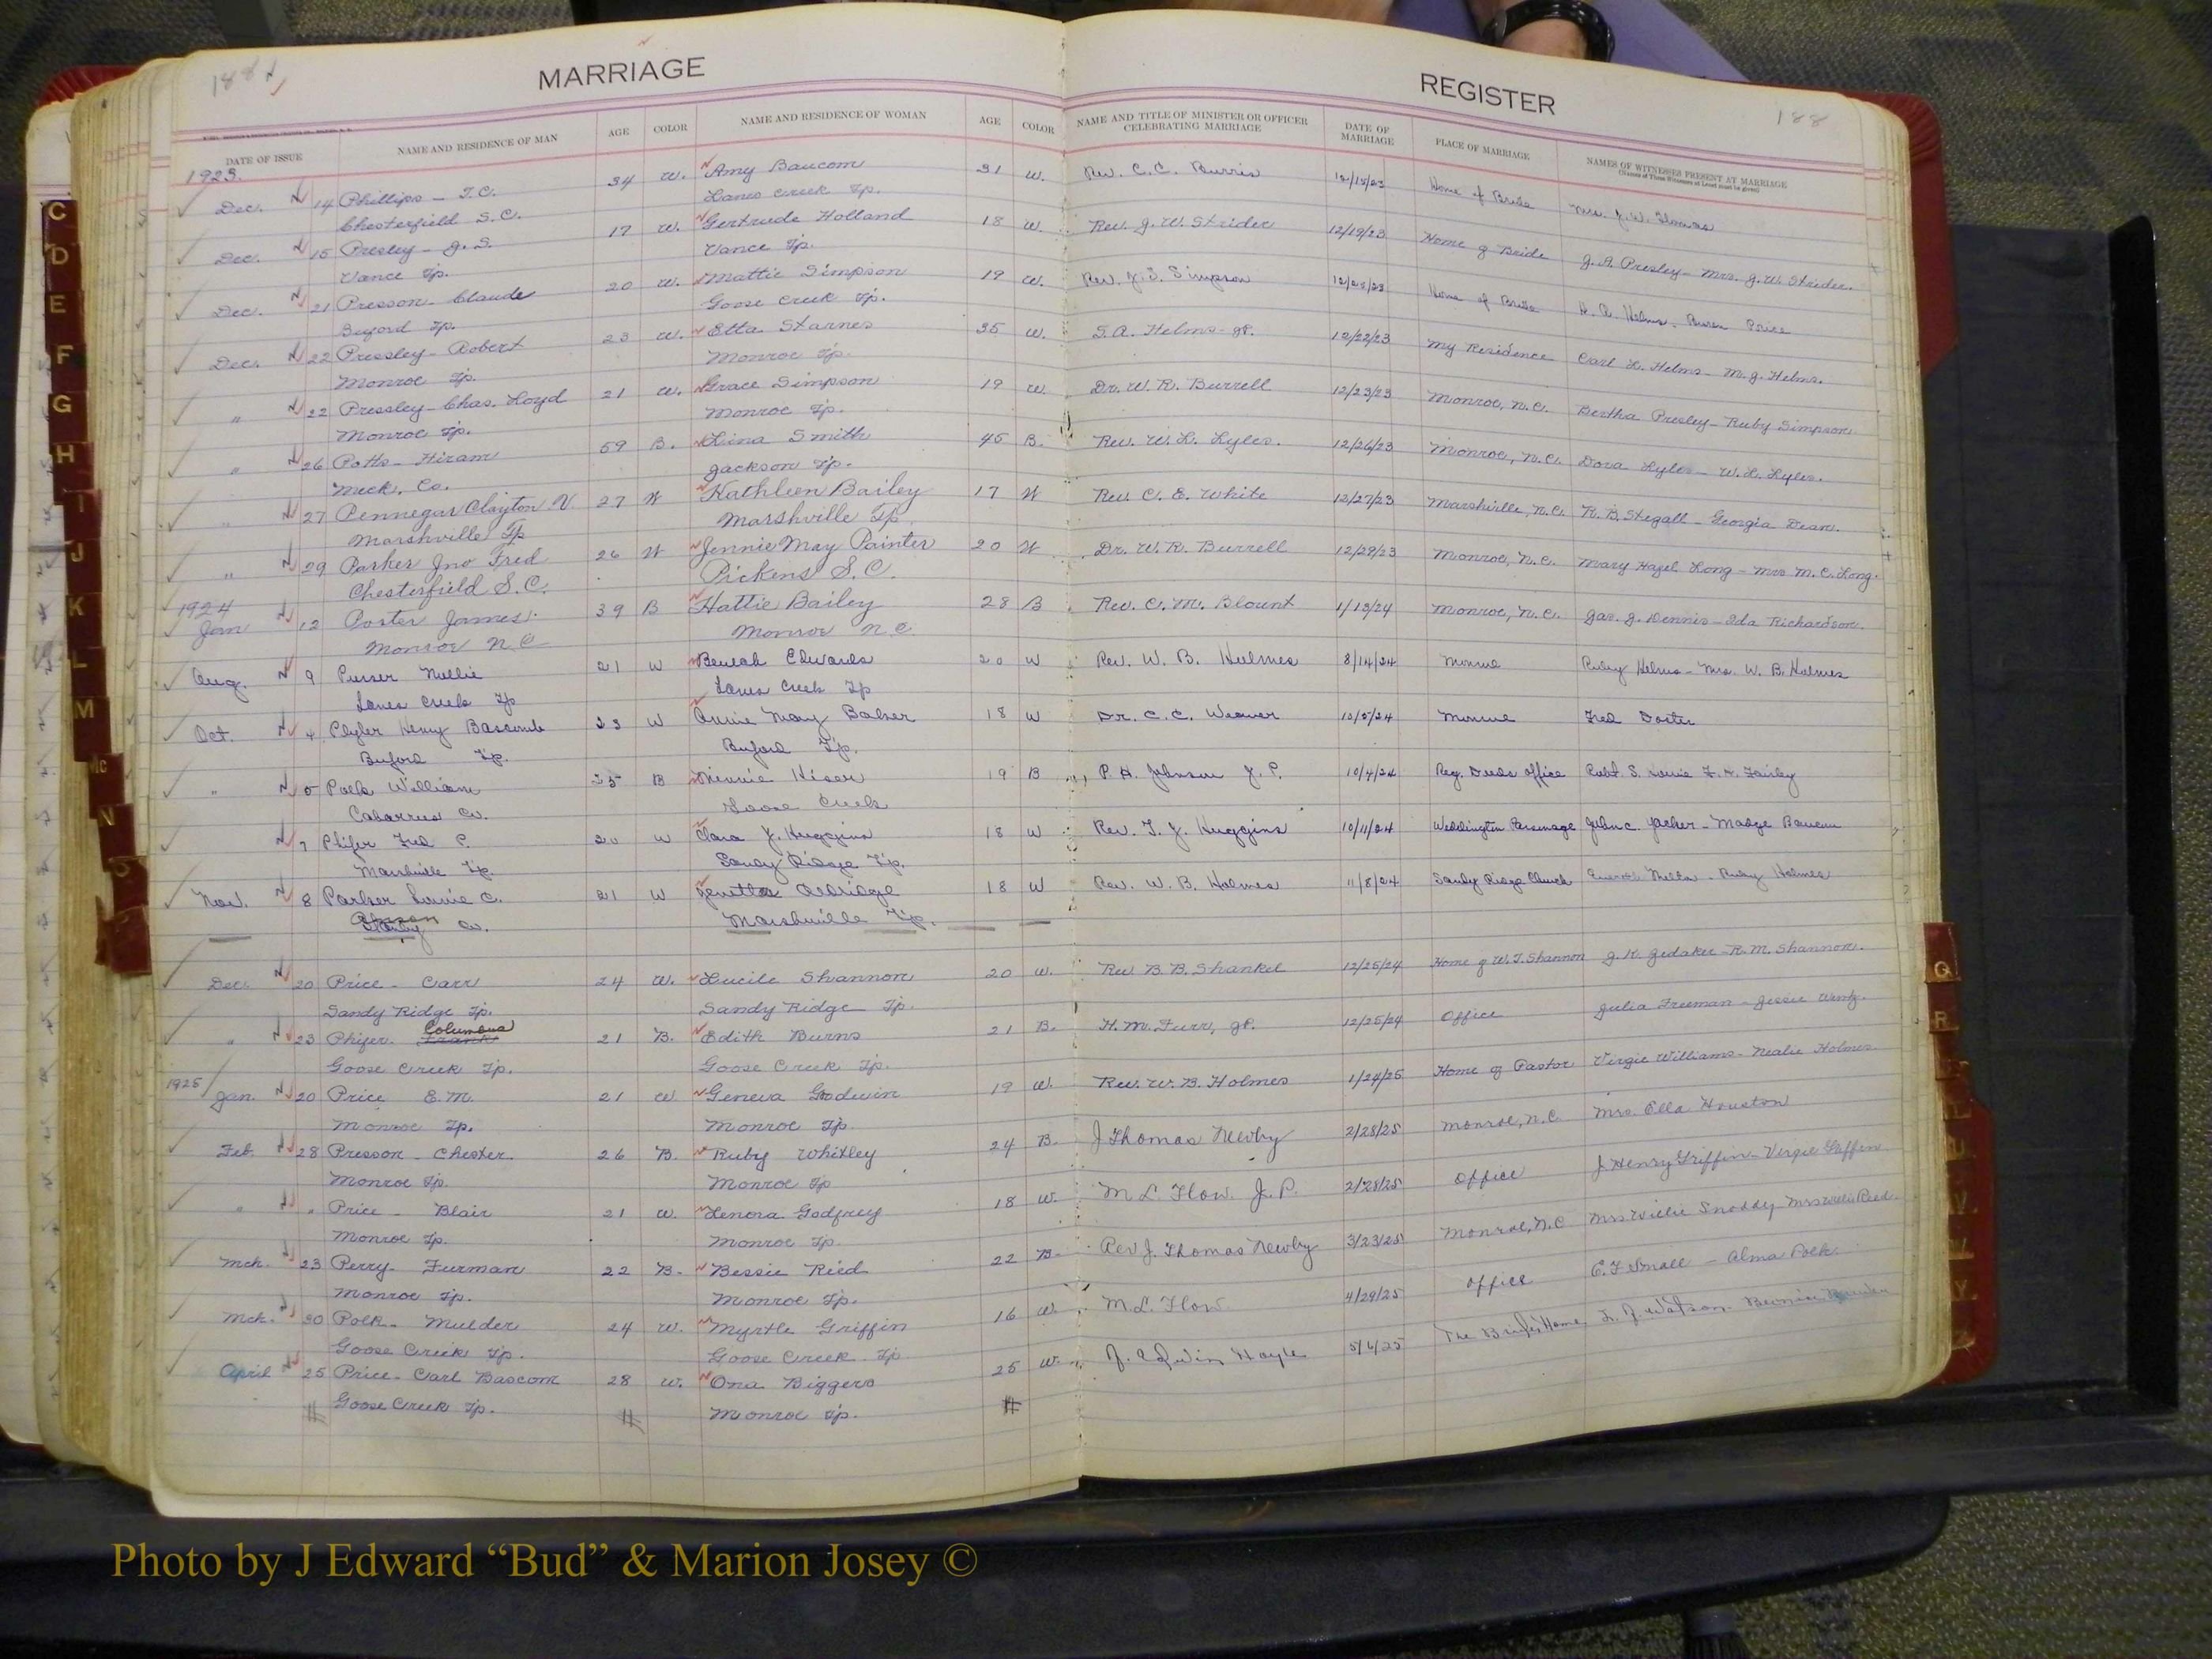 188
MARRIAGE
REGISTER
188
DATE OF ISSUE NAME AND RESIDENCE OF MAN AGE COLOR NAME AND RESIDENCE OF WOMAN AGE COLOR NAME AND TITLE OF MINISTER OR OFFICER CELEBRATING MARRIAGE DATE OF MARRIAGE PLACE OF MARRIAGE NAMES OF WITNESSES PRESENT AT MARRIAGE
1923.
Dec. 14 Phillips - T.C. 34 W. Amy Baucom 31 W. Rev. C.C. Burris 12/15/23 Home of Bride Mrs. J.W. Thomas
Chesterfield S.C. Lanes Creek Tp.
Dec. 15 Presley - J.S. 17 W. Gertrude Holland 18 W. Rev. J.W. Strider 12/19/23 Home of Bride J.A. Presley - Mrs. J.W. Strider.
Vance Tp. Vance Tp.
Dec. 21 Presson - Claude 20 W. Mattie Simpson 19 W. Rev. J.S. Simpson Home of Bride H.A. Helms. Price
Buford Tp. Goose Creek Tp.
Dec. 22 Pressley - Robert 23 W. Etta Starnes 35 W. S.A. Helms - JP. 12/22/23 My Residence Carl L. Helms - M.J. Helms.
Monroe Tp. Monroe Tp.
" 22 Pressley - Chas. Loyd 21 W. Grace Simpson 19 W. Dr. W.R. Burrell 12/23/23 Monroe, N.C. Bertha Presley - Ruby Simpson.
Monroe Tp. Monroe Tp.
" 26 Potts - Hiram 59 B. Lina Smith 45 B. Rev. W.L. Lyles. 12/26/23 Monroe, N.C. Dora Lyles - W.L. Lyles.
Meck. Co. Jackson Tp.
" 27 Pennegar Clayton V. 27 W Kathleen Bailey 17 W Rev. C.E. White 12/27/23 Marshville, N.C. K.B. Stegall - Georgia Dean.
Marshville Tp Marshville Tp
" 29 Parker Jno Fred 26 W Jennie May Painter 20 W Dr. W.R. Burrell 12/29/23 Monroe, N.C. Mary Hazel Long - Mrs M.C. Long.
Chesterfield S.C. Pickens S.C.
1924
Jan 12 Poster James 39 B Hattie Bailey 28 B Rev. C.M. Blount 1/13/24 Monroe, N.C. Jas. J. Dennis - Ida Richardson.
Monroe N C Monroe N C
Aug. 9 Purser Nullie 21 W Beulah Edwards 20 W Rev. W.B. Hulmes 8/14/24 Monroe Ruby Helms - Mrs. W.B. Holmes
Lanes Creek Tp Lanes Creek Tp
Oct. 4 Plyler Henry Bascomb 23 W Annie May Baker 18 W Dr. C.C. Weaver 10/5/24 Monroe Fred Doster
Buford Tp. Buford Tp.
" 5 Polk William 25 B Minnie Hiser 19 B P.H. Johnson J.P. 10/4/24 Reg. Deeds office Robt. S. F.H. Fairley
Cabarrus Co. Goose Creek
7 Phifer Fred C. 20 W Clara J. Huggins 18 W Rev. T.J. Huggins 10/11/24 Weddington Parsonage John C. - Madge Baucom
Marshville Tp. Sandy Ridge Tp.
Nov. 8 Parker Lonnie C. 21 W Aldridge 18 W Rev. W.B. Holmes 11/8/24 Sandy Ridge Church - Ruby Holmes
Anson Co. Marshville Tp.
Dec. 20 Price - Carr 24 W. Lucile Shannon 20 W. Rev B.B. Shankel 12/25/24 Home of W.T. Shannon J.K. Gedaker - R.M. Shannon.
Sandy Ridge Tp. Sandy Ridge Tp.
" 23 Phifer. Columbus Frank 21 B. Edith Burns 21 B. H.M. Furr, JP. 12/25/24 Office Julia Freeman - Jessie Wentz.
Goose Creek Tp. Goose Creek Tp.
1925
Jan. 20 Price E.M. 21 W Geneva Godwin 19 W. Rev. W.B. Holmes 1/24/25 Home of Pastor Virgie Williams - Nealie Holmes.
Monroe Tp. Monroe Tp.
Feb. 28 Presson - Chester. 26 B. Ruby Whitley 24 B. J Thomas Newby 2/28/25 Monroe, N.C. Mrs. Ella Houston
Monroe Tp. Monroe Tp
" " Price - Blair 21 W. Lenora Godfrey 18 W. M.L. Flow. J.P. 2/28/25 Office J. Henry Griffin - Virgie Griffin
Monroe Tp. Monroe Tp.
Mch. 23 Perry - Furman 22 B. Bessie Reid 22 B. Rev J. Thomas Newby 3/23/25 Monroe, N.C Mrs Willie Snoddy - Mrs Willie Reed.
Monroe Tp. Monroe Tp.
Mch. 30 Polk - Mulder 24 W. Myrtle Griffin 16 W. M.L. Flow 4/29/25 office C.F. Small - Alma Polk.
Goose Creek Tp. Goose Creek Tp
April 25 Price - Carl Bascom 28 W. Ona Biggers 25 W. J. Edwin Hoyle 5/6/25 The Brides Home L.J. Watson -
Goose Creek Tp. Monroe Tp.
C
D
E
F
G
H
I
J
K
L
M
Mc
N
O
Q
R
Photo by J Edward “Bud” & Marion Josey ©